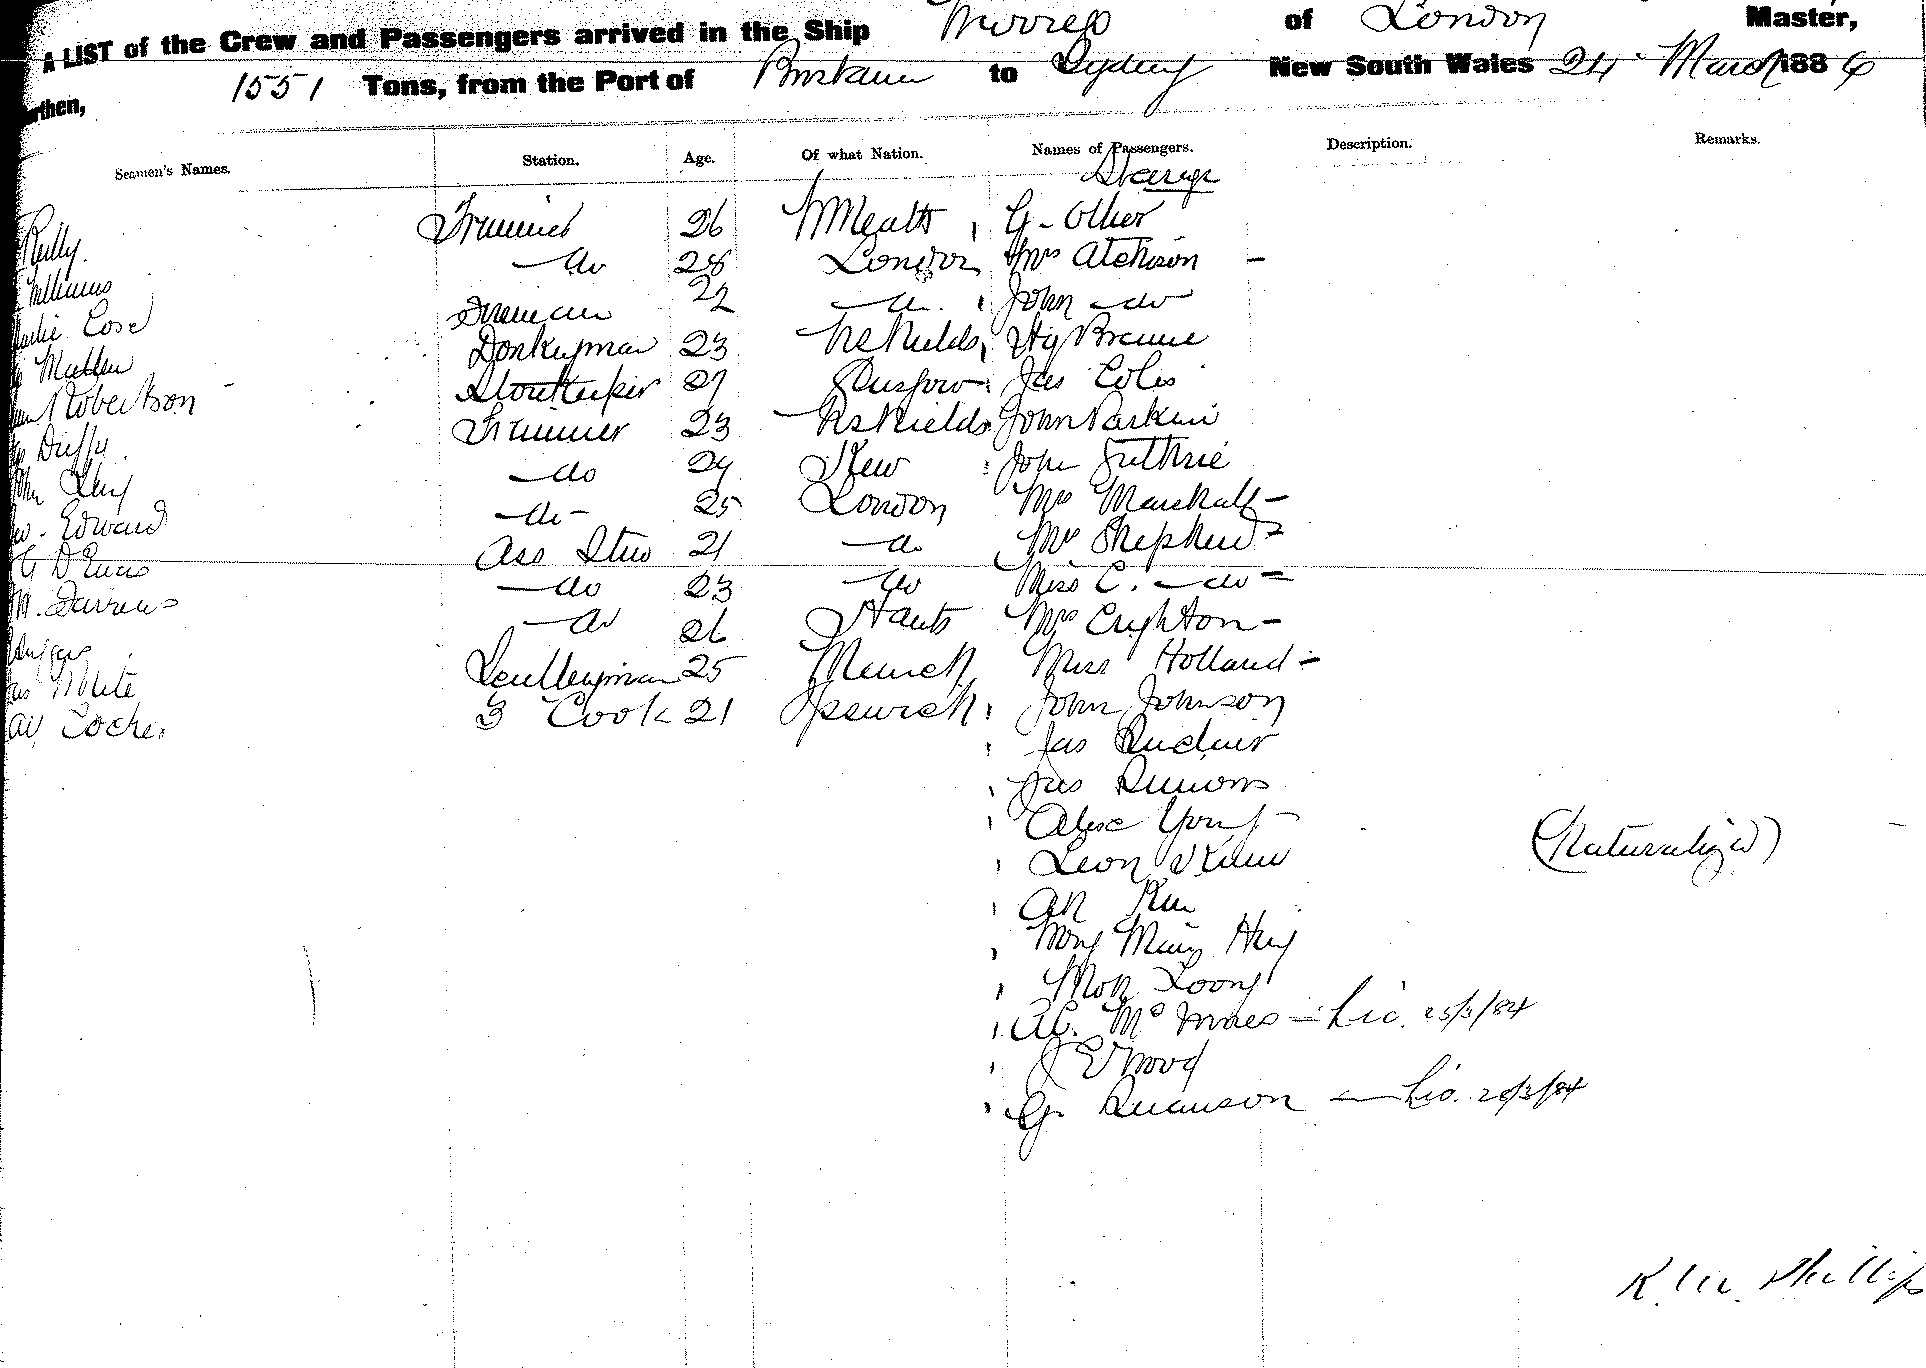 A LIST of the Crew and Passengers arrived in the Ship of London Master,
1551 Tons, from the Port of Brisbane to Sydney New South Wales 24 March 1886
Seamen's Names. Station. Age. Of what Nation. Names of Passengers. Description. Remarks.
Steerage
Reilly Trimmer 26 WMeath G - Olliver
Williams do 28 London Mrs Atchison -
Cose Fireman 22 do John do
Mullen Donkeyman 23 NShields Hy Browne
Robertson Storekeeper 27 Glasgow Jas Coles
Duffy Trimmer 23 NShields John Parkin
do 24 Kew John Guthrie
Edward do 25 London Mrs Marshall -
Ass Stew 21 do Mrs Shepherd -
do 23 do Miss C. do -
do 26 Hants Mrs Crighton -
White Sculleryman 25 Miss Holland -
Locke 3 Cook 21 Ipswich John Johnson
Jas Sinclair
Jas Simons
Alex Young
Leon (Naturalized)
Ah
Wong Hing
Mon Loong
McInnes - Lic. 25/3/84
Wood
G. Swanson - Lic. 28/3/84
Phillips